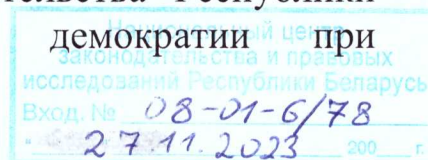 тельства Республики
демократии при
Национальный центр
законодательства и правовых
исследований Республики Беларусь
Вход. № 08-01-6/78
" 27.11.2023 200 г.